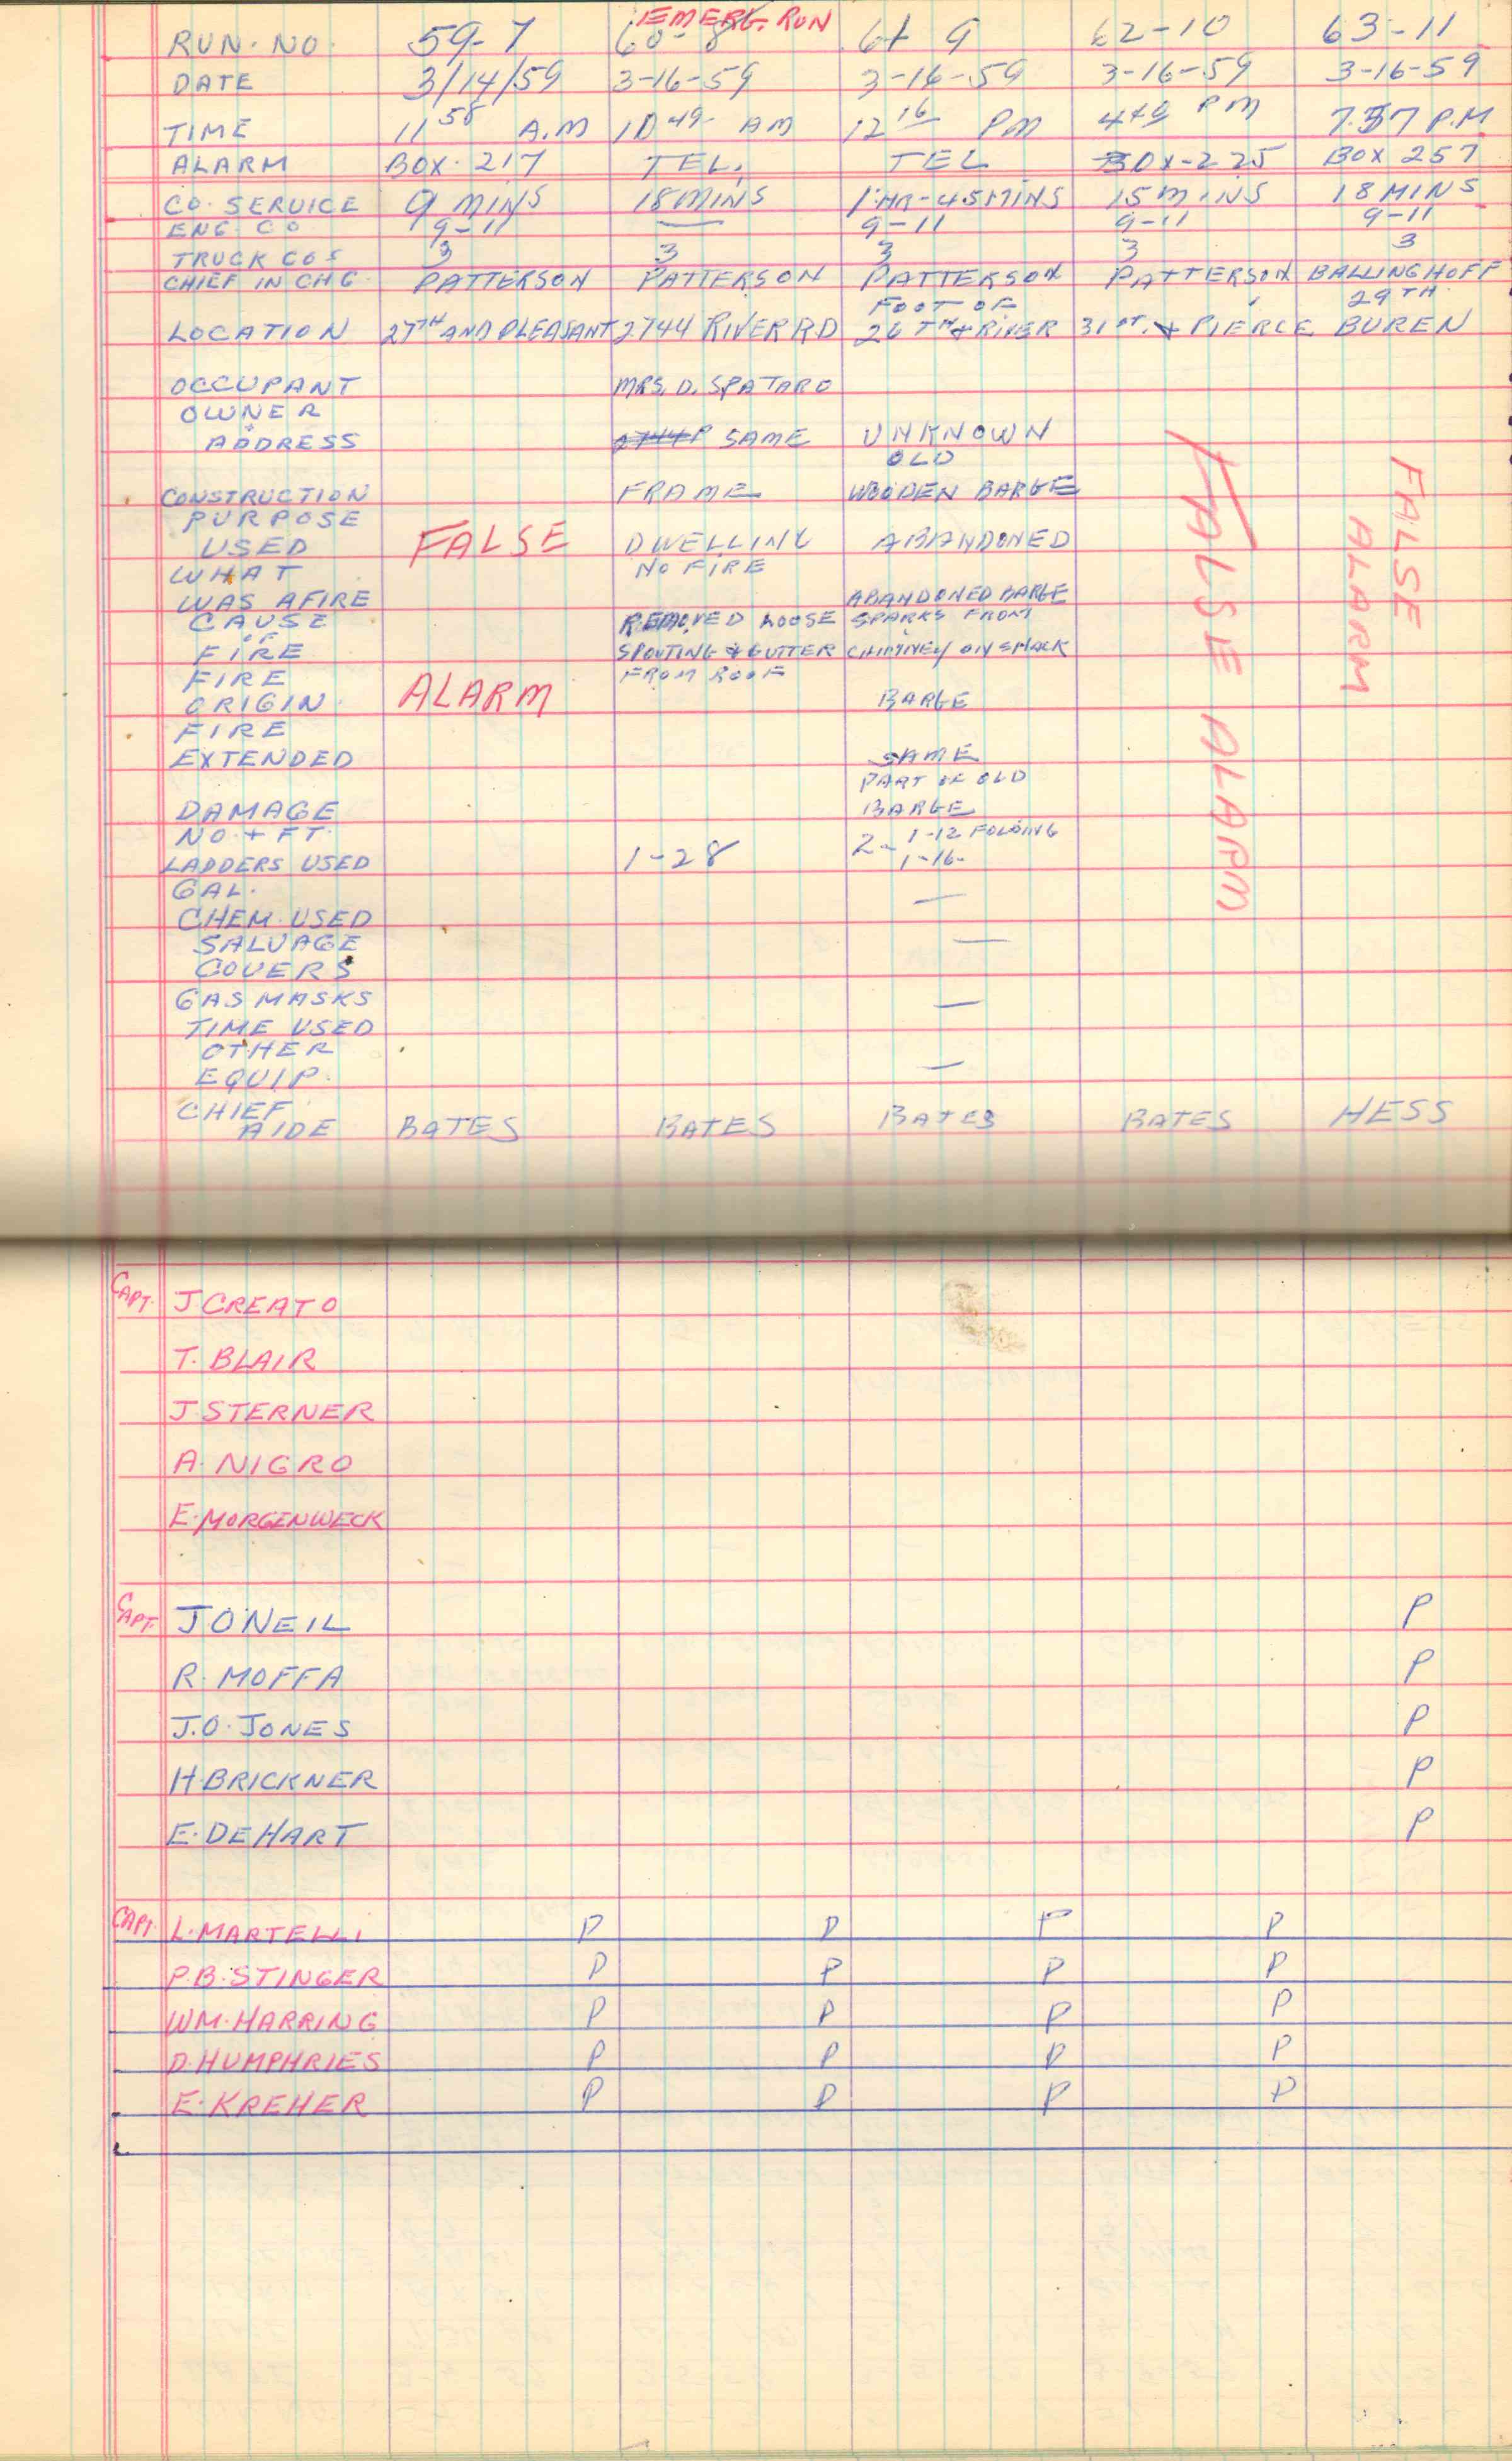 EMERG. RUN
RUN. NO. 59-7 60-8 61 9 62-10 63-11
DATE 3/14/59 3-16-59 3-16-59 3-16-59 3-16-59
TIME 11 58 A.M 10 49 AM 12 16 PM 4 49 PM 7.57 P.M
ALARM BOX. 217 TEL. TEL BOX-225 BOX 257
CO. SERVICE 9 MINS 18 MINS 1 HR-45 MINS 15 MINS 18 MINS
ENG. CO 9-11 — 9-11 9-11 9-11
TRUCK COS 3 3 3 3 3
CHIEF IN CHG. PATTERSON PATTERSON PATTERSON PATTERSON BALLINGHOFF
FOOT OF 29TH
LOCATION 27TH AND PLEASANT 2744 RIVER RD 26TH & RIVER 31ST. & PIERCE BUREN
OCCUPANT MRS. D. SPATARO
OWNER
ADDRESS SAME UNKNOWN
OLD
CONSTRUCTION FRAME WOODEN BARGE
PURPOSE
USED FALSE DWELLING ABANDONED
WHAT NO FIRE
WAS AFIRE ABANDONED BARGE
CAUSE REMOVED LOOSE SPARKS FROM
OF
FIRE SPOUTING & GUTTER CHIMNEY ON SHACK
FIRE FROM ROOF
ORIGIN. ALARM BARGE
FIRE
EXTENDED SAME
PART OF OLD
DAMAGE BARGE
NO. + FT. 1-12 FOLDING
LADDERS USED 1-28 2- 1-16-
GAL. —
CHEM. USED
SALVAGE —
COVERS
GAS MASKS —
TIME USED
OTHER
EQUIP. —
CHIEF
AIDE BATES BATES BATES BATES HESS
FALSE ALARM
FALSE
ALARM
CAPT. J CREATO
T. BLAIR
J STERNER
A. NIGRO
E. MORGENWECK
CAPT. J O'NEIL P
R. MOFFA P
J.O. JONES P
H BRICKNER P
E. DEHART P
CAPT. L. MARTELLI P P P P
P.B. STINGER P P P P
WM. HARRING P P P P
D. HUMPHRIES P P P P
E. KREHER P P P P